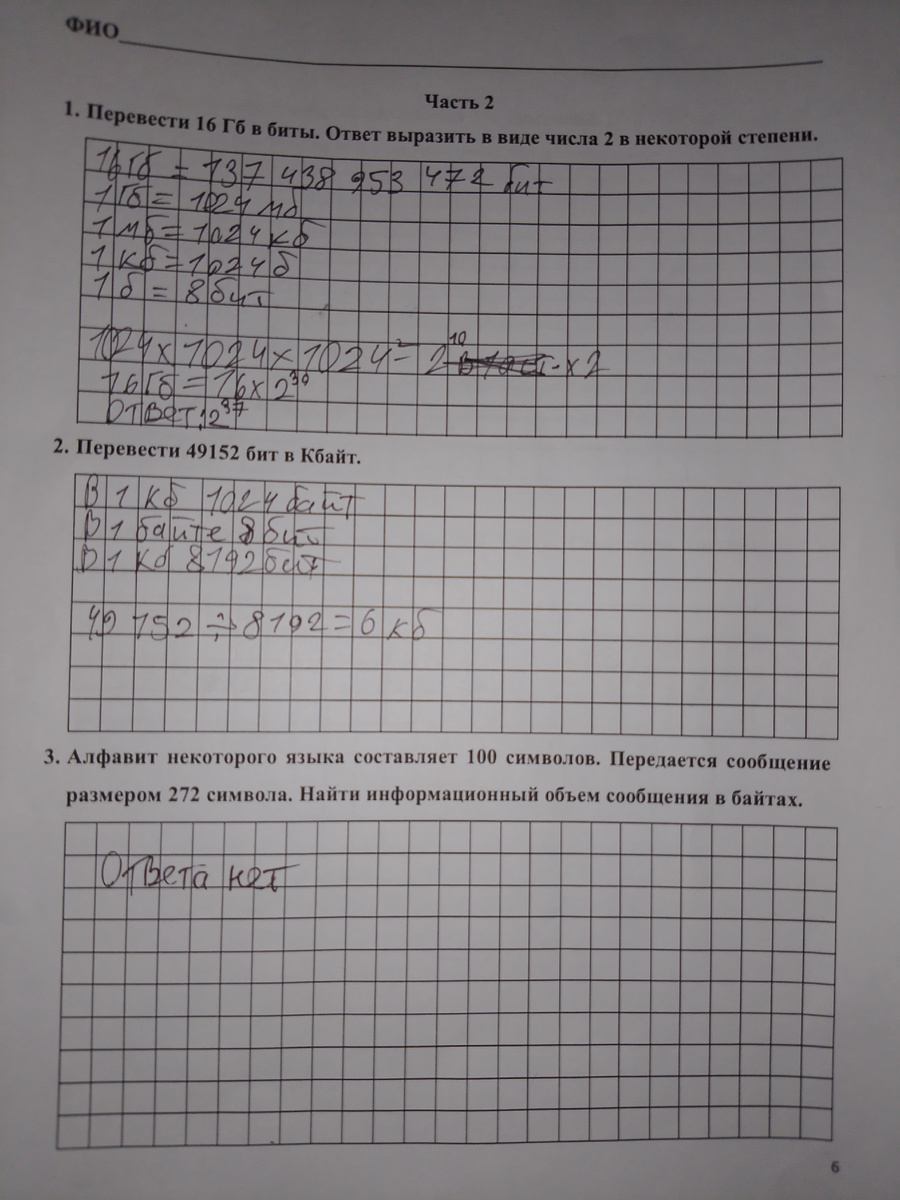 ФИО
Часть 2
1. Перевести 16 Гб в биты. Ответ выразить в виде числа 2 в некоторой степени.
16Гб = 137 438 953 472 бит
1Гб = 1024 мб
1 мб = 1024 кб
1 кб = 1024 б
1 б = 8 бит
1024 x 1024 x 1024 = 2¹⁰ x 2
16Гб = 16 x 2³⁰
Ответ: 2³⁷
2. Перевести 49152 бит в Кбайт.
В 1 кб 1024 байт
В 1 байте 8 бит
В 1 кб 8192 бит
49 152 ÷ 8192 = 6 кб
3. Алфавит некоторого языка составляет 100 символов. Передается сообщение
размером 272 символа. Найти информационный объем сообщения в байтах.
Ответа нет
6